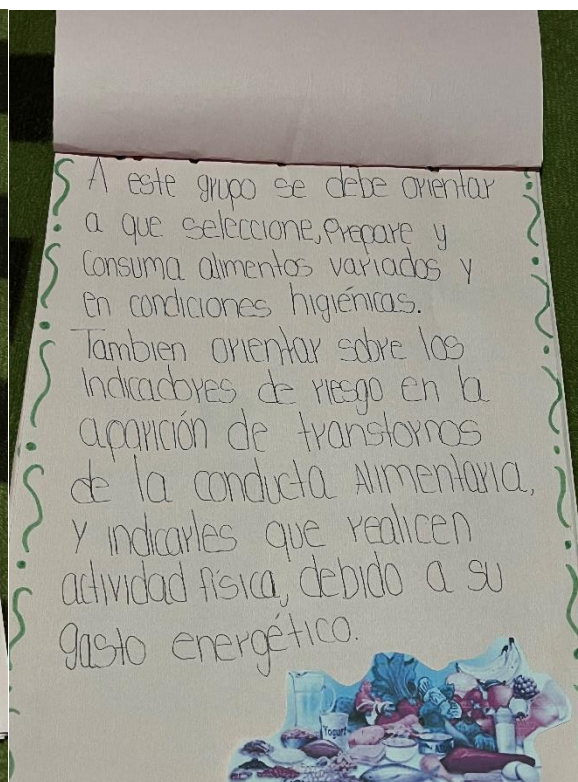 A este grupo se debe orientar
a que seleccione, Prepare y
Consuma alimentos variados y
en condiciones higiénicas.
Tambien orientar sobre los
Indicadores de riesgo en la
aparición de transtornos
de la conducta Alimentaria,
y indicarles que realicen
actividad física, debido a su
gasto energético.
Yogurt